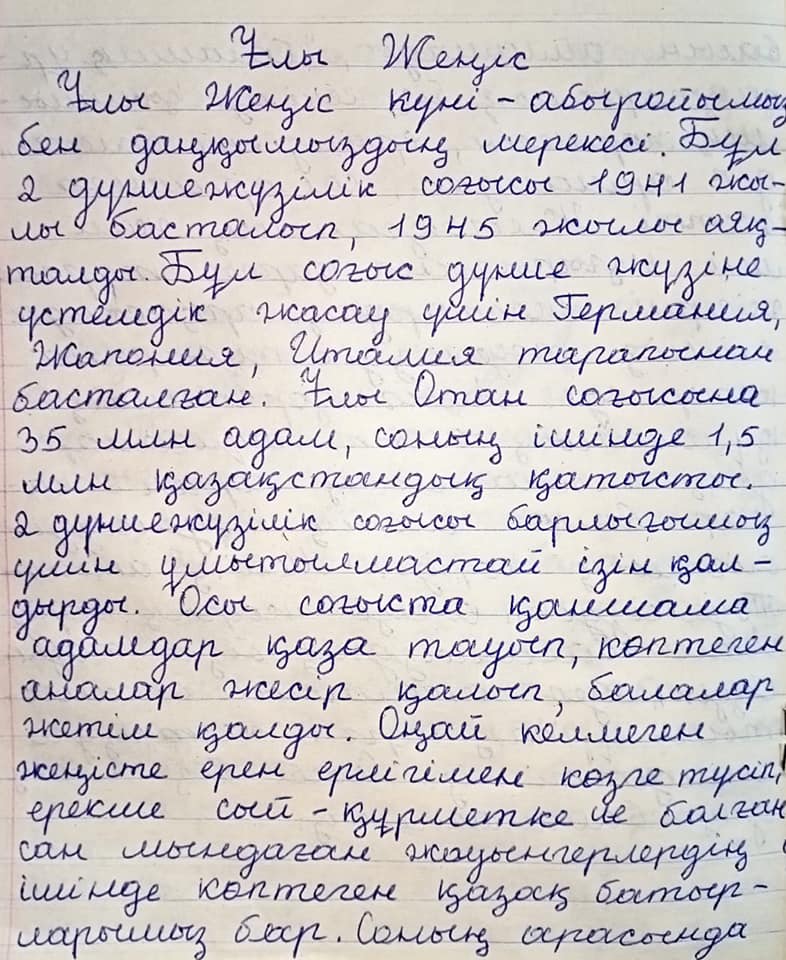 Ұлы Жеңіс
Ұлы Жеңіс күні - абыройымыз
бен даңқымыздың мерекесі. Бұл
2 дүниежүзілік соғысы 1941 жы-
лы басталып, 1945 жылы аяқ-
талды. Бұл соғыс дүние жүзіне
үстемдік жасау үшін Германия,
Жапония, Италия тарапынан
басталған. Ұлы Отан соғысына
35 млн адам, соның ішінде 1,5
млн қазақстандық қатысты.
2 дүниежүзілік соғысы барлығымыз
үшін ұмытылмастай ізін қал-
дырды. Осы соғыста қаншама
адамдар қаза тауып, көптеген
аналар жесір қалып, балалар
жетім қалды. Оңай келмеген
жеңісте ерен ерлігімен көзге түсіп,
ерекше сый - құрметке ие болған
сан мындаған жауынгерлердің
ішінде көптеген қазақ батыр-
ларымыз бар. Соның арасында